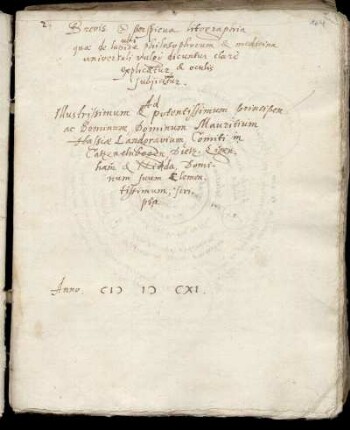 2.
Brevis & perspicua lithographia
ubi
quæ de lapide philosophorum & medicina
universali vulgo dicuntur clare
explicatur, & oculis
subjicitur.
Ad
Illustrissimum & potentissimum principem
ac Dominum Dominum Mauritium
Hassiæ Landgravium Comitem in
Catzenelnbogen, Dietz, Zigen-
hain & Nidda, Domi-
num suum Clemen-
tissimum, scri-
pta.
Anno CIↃ IↃ CXI.